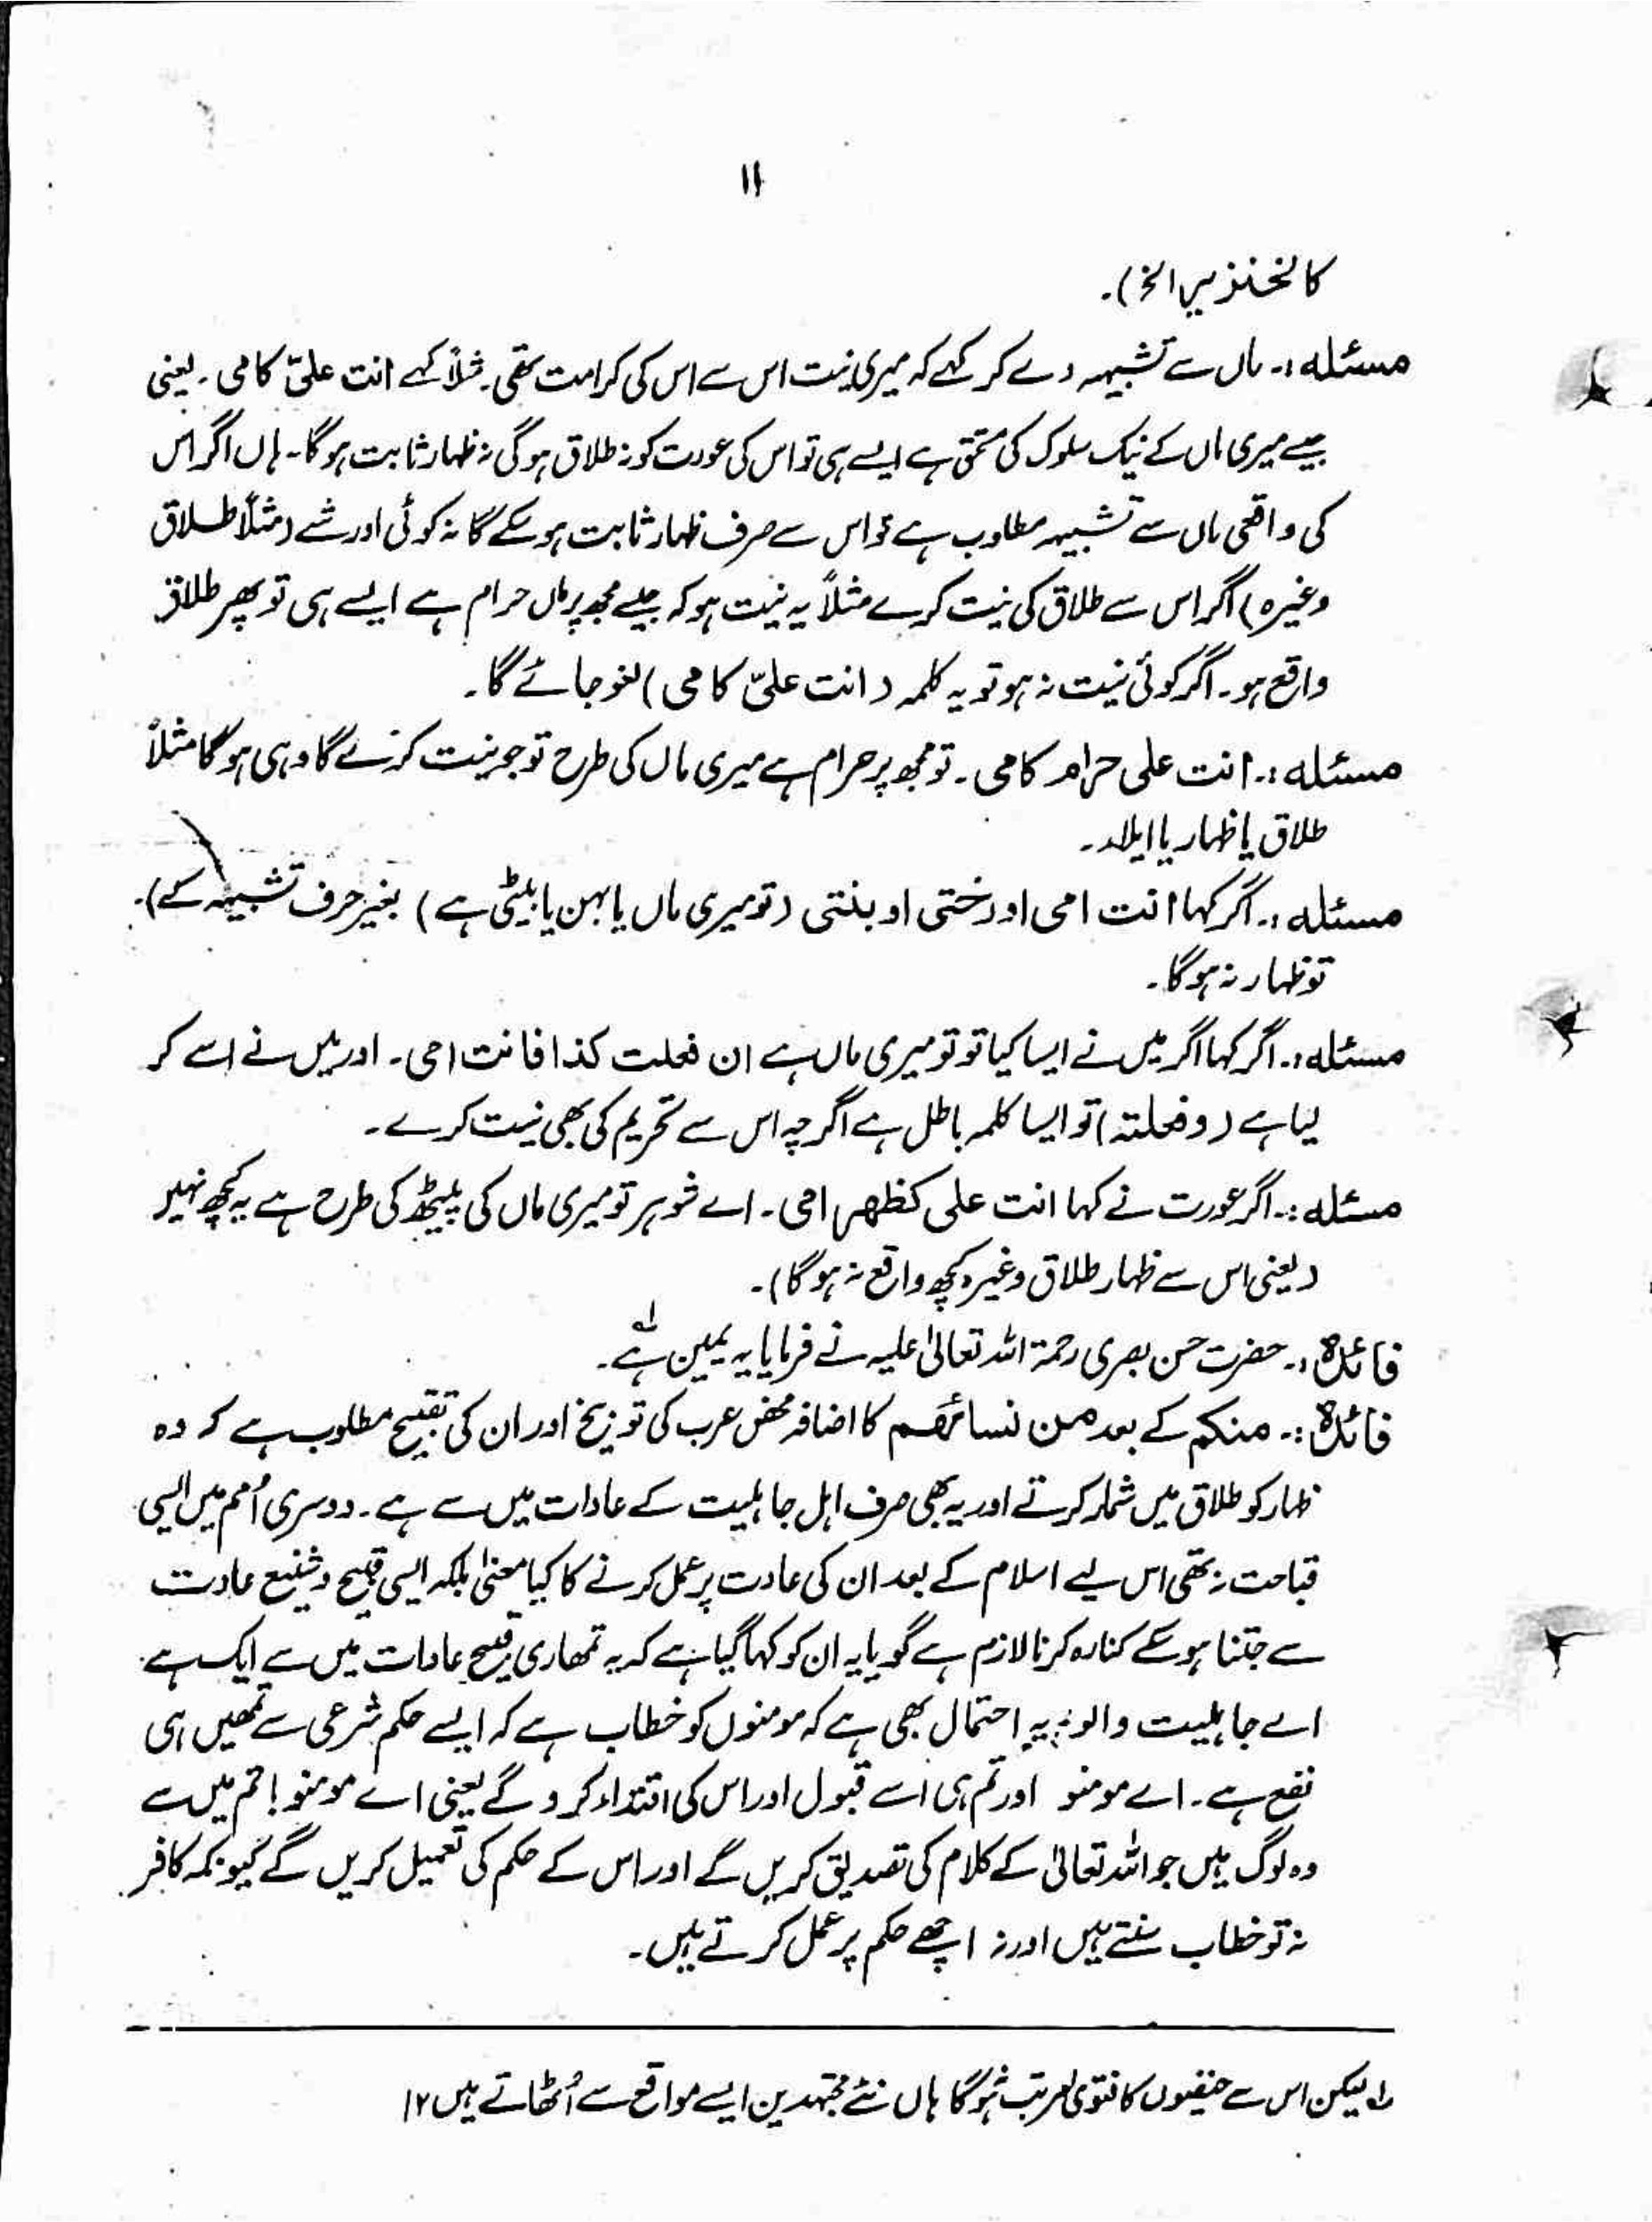 ۱۱
کالخنزیر الخ)۔
مسئلہ :۔ ماں سے تشبیہہ دے کر کہے کہ میری نیت اس سے اس کی کرامت تھی۔ مثلاً کہے انت علیّ کامی ۔ یعنی
جیسے میری ماں کے نیک سلوک کی مستحق ہے ایسے ہی تو اس کی عورت کو نہ طلاق ہوگی نہ ظہار ثابت ہوگا۔ ہاں اگر اس
کی واقعی ماں سے تشبیہہ مطلوب ہے تو اس سے صرف ظہار ثابت ہو سکے گا نہ کوئی اور شے (مثلاً طلاق
وغیرہ) اگر اس سے طلاق کی نیت کرے مثلاً یہ نیت ہو کہ جیسے مجھ پر ماں حرام ہے ایسے ہی تو پھر طلاق
واقع ہو۔ اگر کوئی نیت نہ ہو تو یہ کلمہ (انت علیّ کامی) لغو جائے گا۔
مسئلہ :۔ انت علی حرام کامی ۔ تو مجھ پر حرام ہے میری ماں کی طرح تو جو نیت کرے گا وہی ہوگا مثلاً
طلاق یا ظہار یا ایلاء۔
مسئلہ :۔ اگر کہا انت امی او اختی او بنتی (تو میری ماں یا بہن یا بیٹی ہے) بغیر حرف تشبیہ کے)۔
تو ظہار نہ ہوگا۔
مسئلہ :۔ اگر کہا اگر میں نے ایسا کیا تو تو میری ماں ہے ان فعلت کذا فانت امی۔ اور میں نے اسے کر
لیا ہے (وفعلتہ) تو ایسا کلمہ باطل ہے اگرچہ اس سے تحریم کی بھی نیت کرے۔
مسئلہ :۔ اگر عورت نے کہا انت علی کظھر امی۔ اے شوہر تو میری ماں کی پیٹھ کی طرح ہے یہ کچھ نہیں
(یعنی اس سے ظہار طلاق وغیرہ کچھ واقع نہ ہوگا)۔
فائدہ :۔ حضرت حسن بصری رحمۃ اللہ تعالیٰ علیہ نے فرمایا یہ یمین ہے۱؎۔
فائدہ :۔ منکم کے بعد من نسائھم کا اضافہ محض عرب کی توزیخ اور ان کی تقبیح مطلوب ہے کہ وہ
ظہار کو طلاق میں شمار کرتے اور یہ بھی صرف اہل جاہلیت کے عادات میں سے ہے۔ دوسری اُمم میں ایسی
قباحت نہ تھی اس لیے اسلام کے بعد ان کی عادت پر عمل کرنے کا کیا معنیٰ بلکہ ایسی قبیح و شنیع عادت
سے جتنا ہو سکے کنارہ کرنا لازم ہے گویا یہ ان کو کہا گیا ہے کہ یہ تمھاری قبیح عادات میں سے ایک ہے
اے جاہلیت والو، یہ احتمال بھی ہے کہ مومنوں کو خطاب ہے کہ ایسے حکم شرعی سے تمھیں ہی
نفع ہے۔ اے مومنو اور تم ہی اسے قبول اور اس کی اقتداء کرو گے یعنی اے مومنو! تم میں سے
وہ لوگ ہیں جو اللہ تعالیٰ کے کلام کی تصدیق کریں گے اور اس کے حکم کی تعمیل کریں گے کیونکہ کافر
نہ تو خطاب سنتے ہیں اور نہ اچھے حکم پر عمل کرتے ہیں۔
۱؎ لیکن اس سے حنفیوں کا فتویٰ مرتب نہ ہوگا ہاں نئے مجتہدین ایسے مواقع سے اُٹھاتے ہیں ۱۲